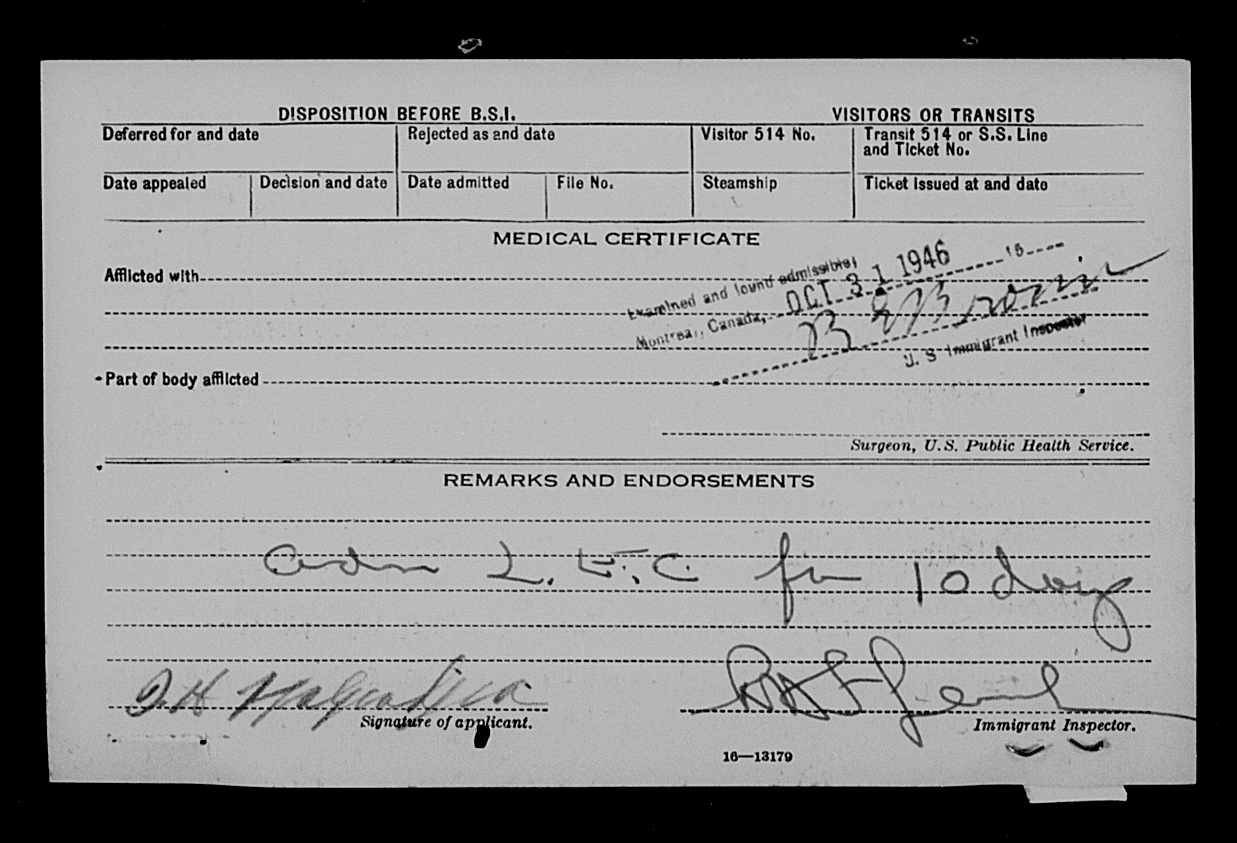 DISPOSITION BEFORE B.S.I.
VISITORS OR TRANSITS
Deferred for and date
Rejected as and date
Visitor 514 No.
Transit 514 or S.S. Line
and Ticket No.
Date appealed
Decision and date
Date admitted
File No.
Steamship
Ticket issued at and date
MEDICAL CERTIFICATE
Afflicted with
Examined and found admissible,
Montreal, Canada, OCT 31 1946
U. S. Immigrant Inspector
Part of body afflicted
Surgeon, U.S. Public Health Service.
REMARKS AND ENDORSEMENTS
adm for 10 days
Signature of applicant.
Immigrant Inspector.
16—13179